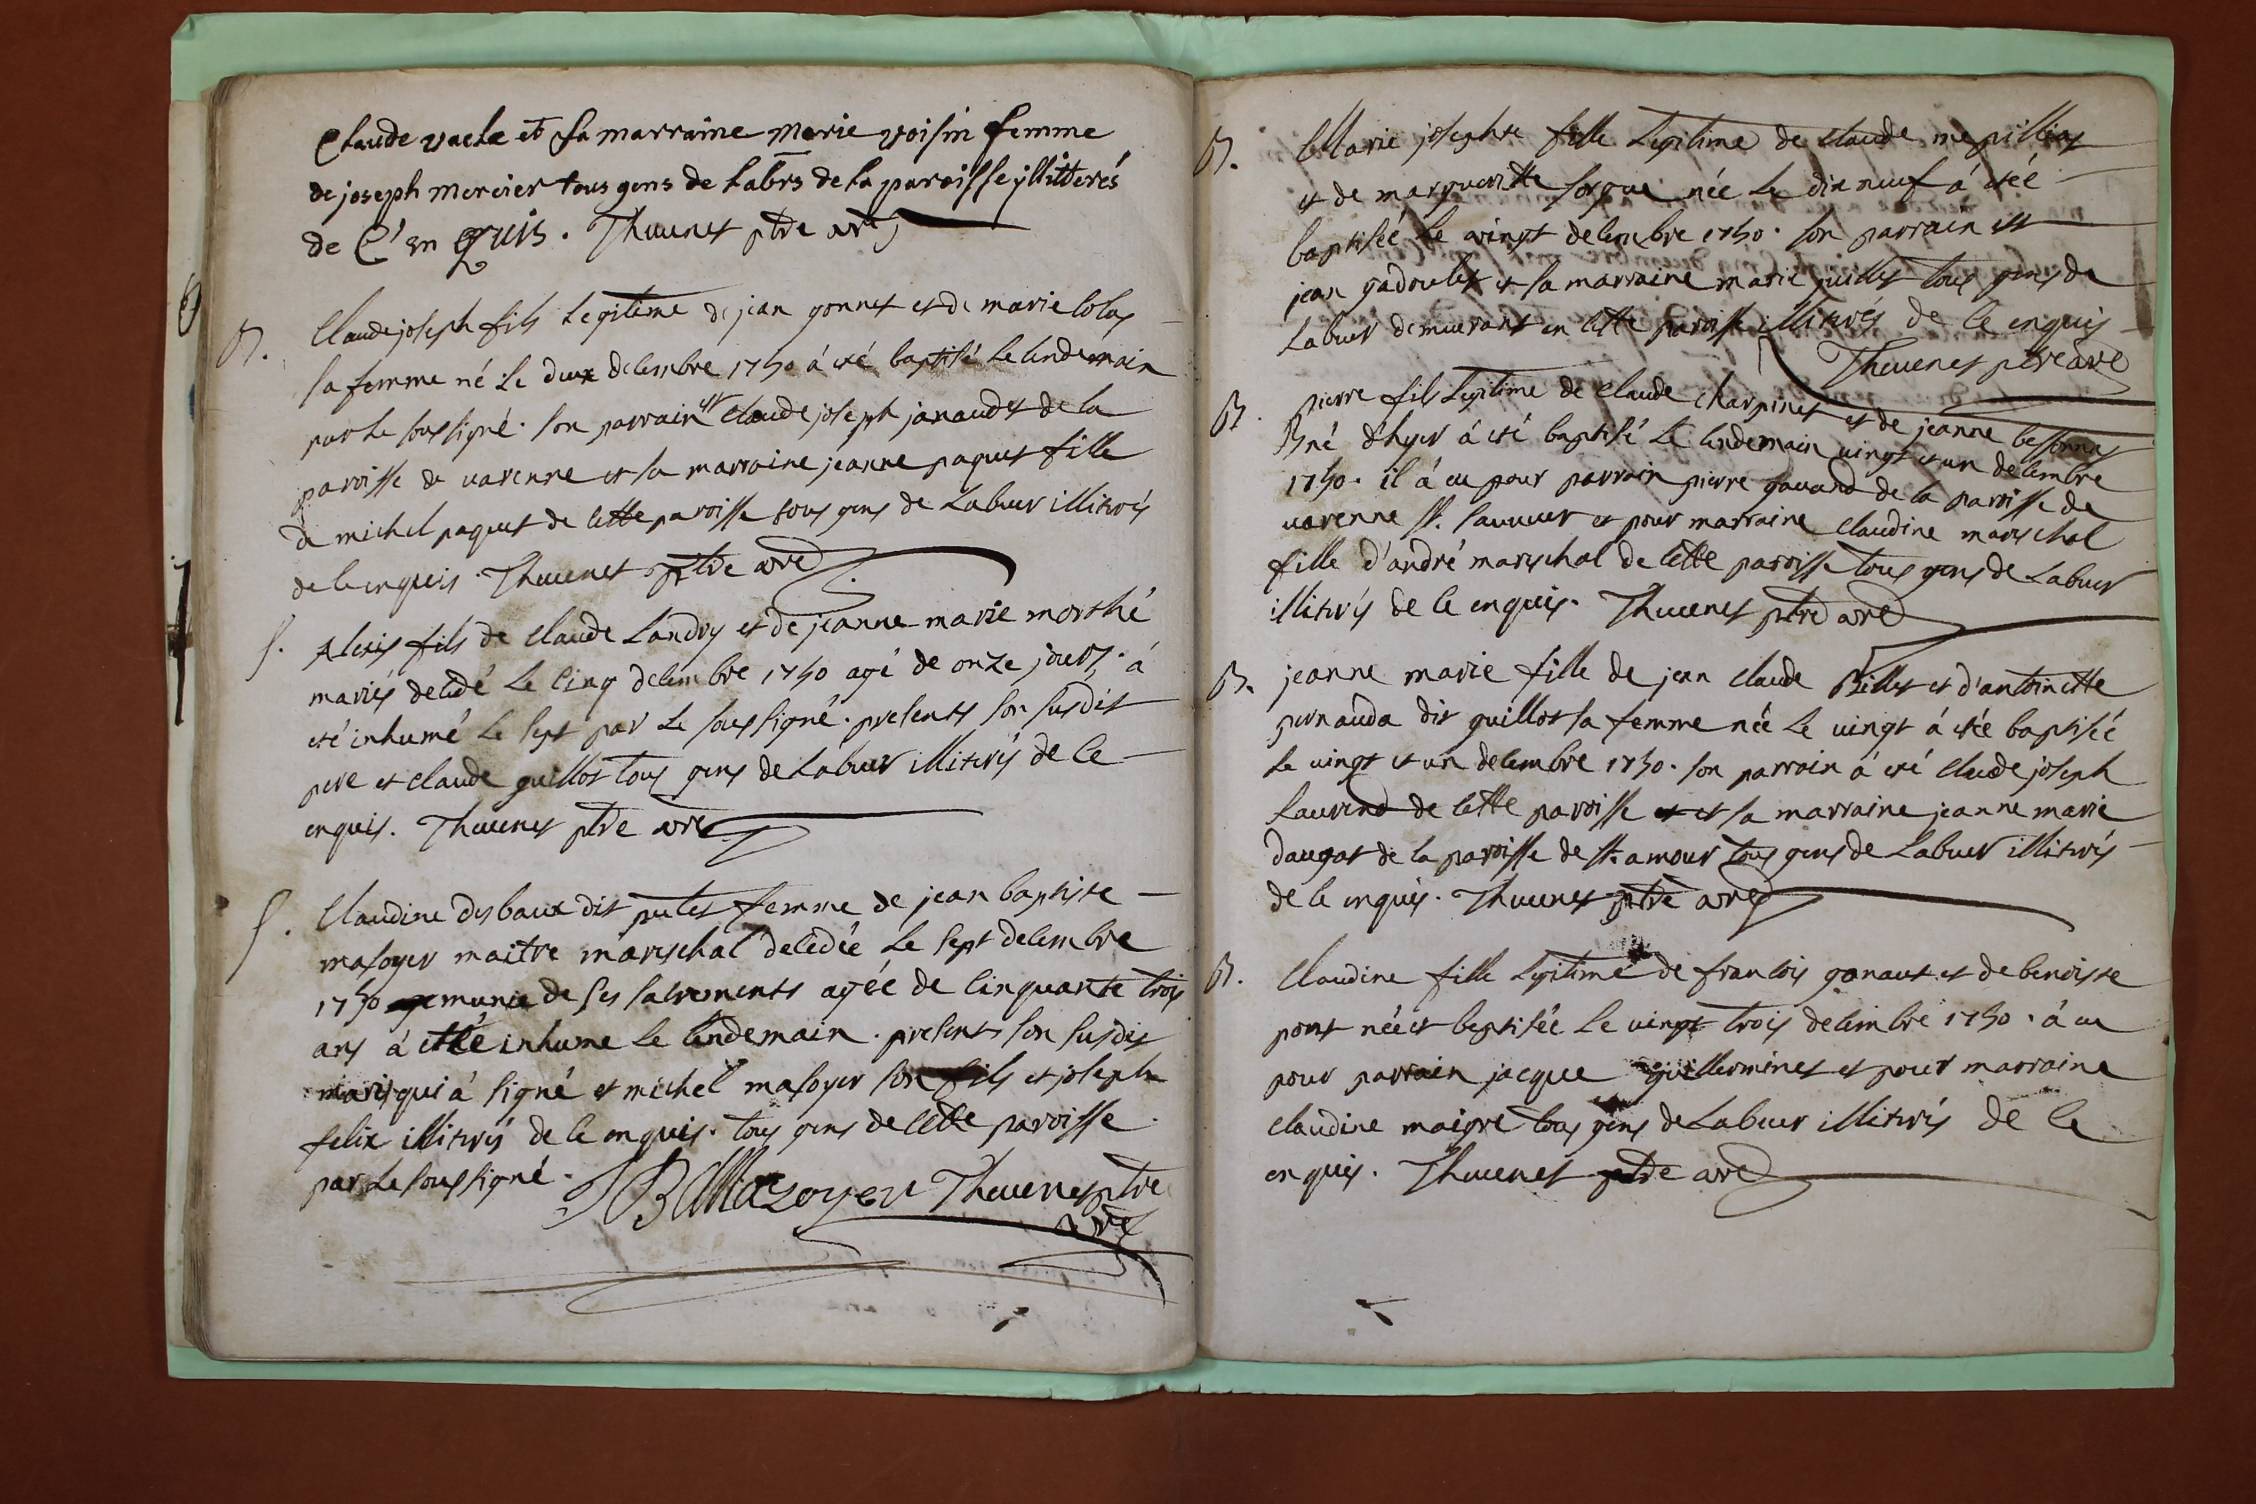 Claude vache et sa marraine marie voisin femme
de joseph mercier tous gens de Labrs de la paroisse jllitterés
de C' en Quis. Theuenet ptre are
B. Claude joseph fils Legitime de jean gonnet et de marie Colas
sa femme né Le deux decembre 1750 á eté baptisé Le lendemain
par Le soussigné. son parrain est Claude joseph janaudet de la
paroisse de varenne et sa marraine jeanne paquet fille
de michel paquet de cette paroisse tous gens de Labeur illitirés
de ce enqueis. Theuenet ptre are
S. Alexis fils de Claude Landry et de jeanne marie morthé
mariés decedé Le Cinq decembre 1750 agé de onze jours. á
eté inhumé Le sept par Le soussigné. presents son susdit
pere et Claude guillot tous gens de Labeur illitirés de Ce
enquis. Theuenet ptre are
S. Claudine desbaux dit putet femme de jean baptiste
masoyer maitre mareschal decedée Le sept decembre
1750 munie de ses sacrements agée de Cinquante trois
ans á etté inhume Le lendemain. present son susdit
maris qui á signé et michel masoyer son fils et joseph
felix illitirés de ce enqueis. tous gens de Cette paroisse
par Le soussigné.
JB Mazoyer Theuenet ptre
are
B. Marie josephte fille Legitime de Claude mepillias
et de margueritte sorgue née Le dix neuf á etée
baptisée Le vingt decembre 1750. son parrain est
jean gadoulet et sa marraine marie juillet tous gens de
Labeur demeurant en Cette paroisse illitirés de Ce enquis
Theuenet ptre are
B. pierre fils Legitime de Claude charpinet et de jeanne bessonnet
né d'hyer á eté baptisé Le lendemain vingt et un decembre
1750. il á eu pour parrain pierre gauand de la paroisse de
varenne st. sauueur et pour marraine Claudine mareschal
fille d'andré mareschal de Cette paroisse tous gens de Labeur
illitirés de Ce enquis. Theuenet ptre are
B. jeanne marie fille de jean Claude Billet et d'antoinette
pernauda dit guillot sa femme née Le vingt á etée baptisée
Le vingt et un decembre 1750. son parrain á eté Claude joseph
Laurend de Cette paroisse et et sa marraine jeanne marie
daugat de la paroisse de st. amour tous gens de Labeur illitirés
de Ce enquis. Theuenet ptre are
B. Claudine fille Legitime de francois gonaut et de benoiste
pont née et baptisée Le vingt trois decembre 1750. á eu
pour parrain jacque guillerminet et pour marraine
Claudine maigre tous gens de Labeur illitirés de Ce
enquis. Theuenet ptre are